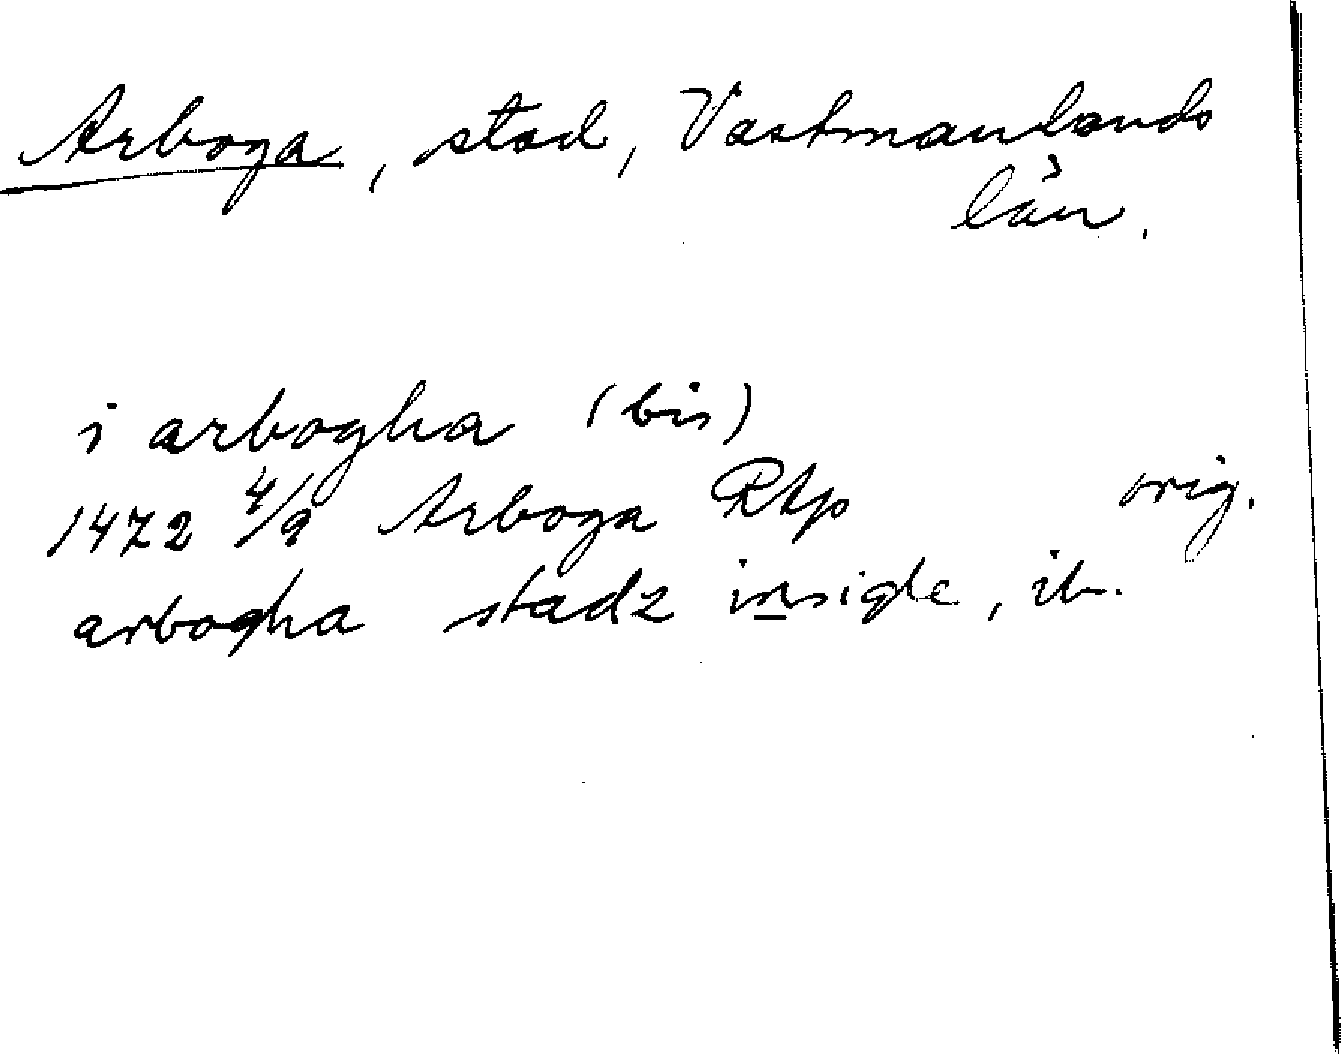 Arboga, stad, Västmanlands
län.
i arbogha (bis)
1472 4/9 Arboga RAp orig.
arbogha stadz insigle, ib.